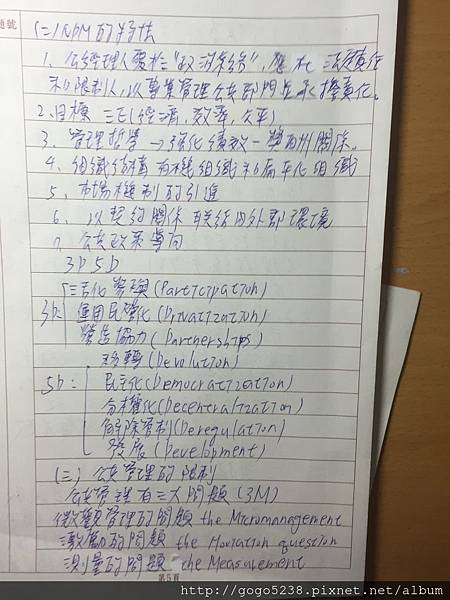 題號
(二)NPM的特性
1、公經理人要於"政治系統",
和限制人,以專業管理公共部門且承擔責任。
2、目標 三E(經濟,效率,公平)
3、管理哲學→強化績效-獎酬關係。
4、組織結構 有機組織和扁平化組織
5、市場機制的引進
6、以契約關係 聯結內外部環境
7、公共政策導向
3P5D
3P: 活化參與(Participation)
運用民營化(Privatization)
營造協力(Partnerships)
5D: 移轉(Devolution)
民主化(Democratization)
分權化(Decentralization)
解除管制(Deregulation)
發展(Development)
(三)公共管理的限制
公共管理有三大問題(3M)
微觀管理的問題 the Micromanagement
激勵的問題 the Motivation question
測量的問題 the Measurement
第5頁
http://gogo5238.pixnet.net/album